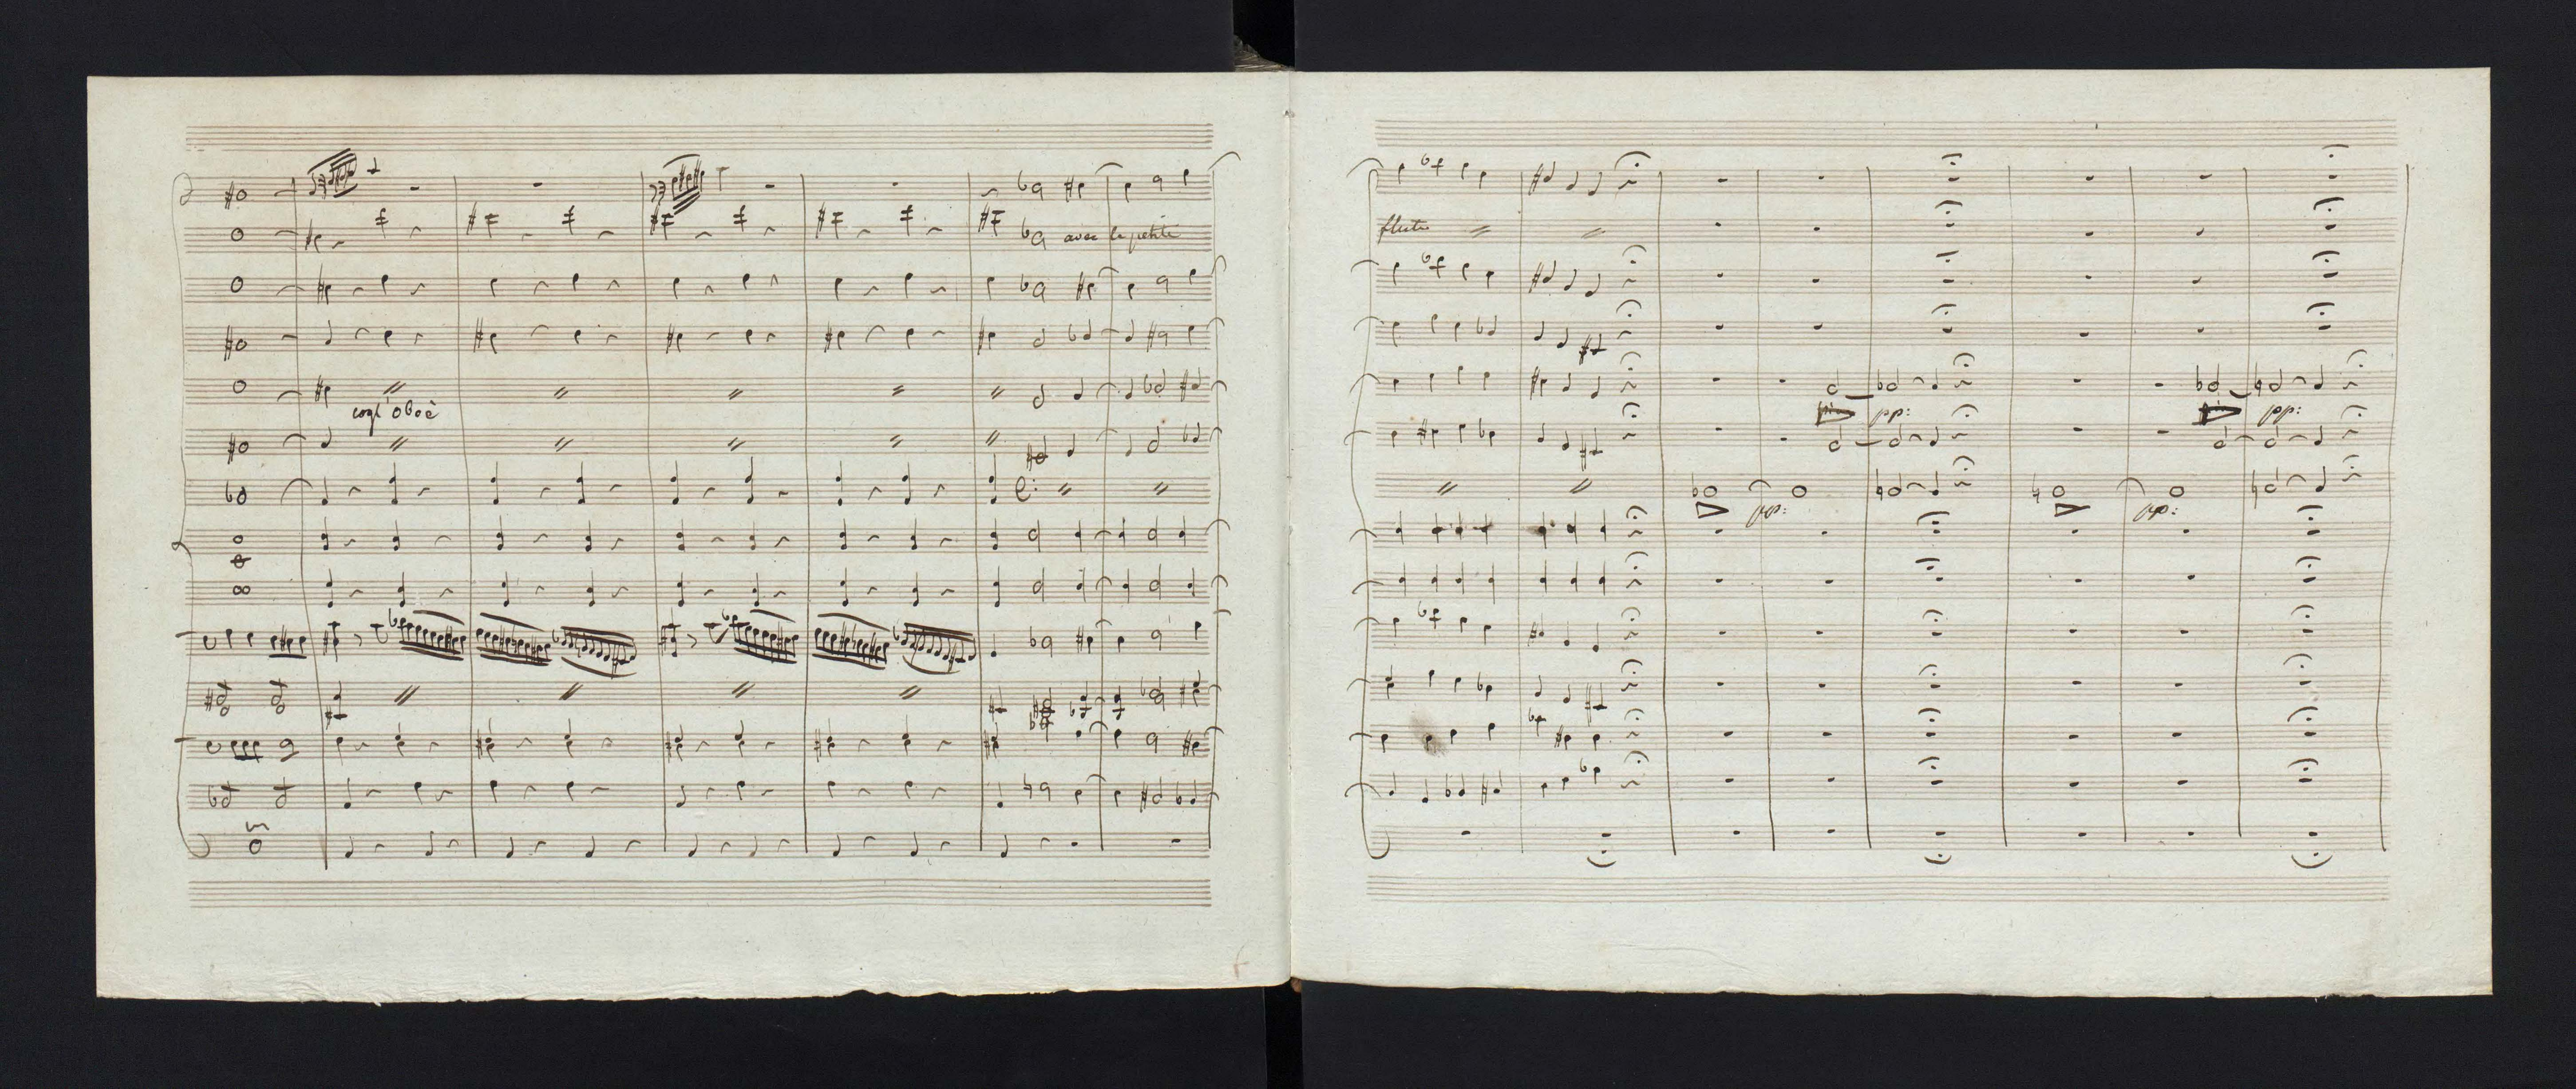 avec la petite
cogl'oboè
flute
pp: pp:
pp: pp: